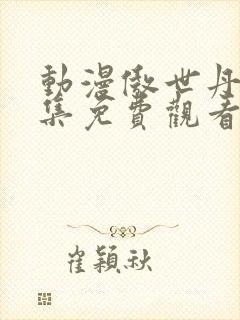 動漫傲世丹
集免費觀看
崔穎秋